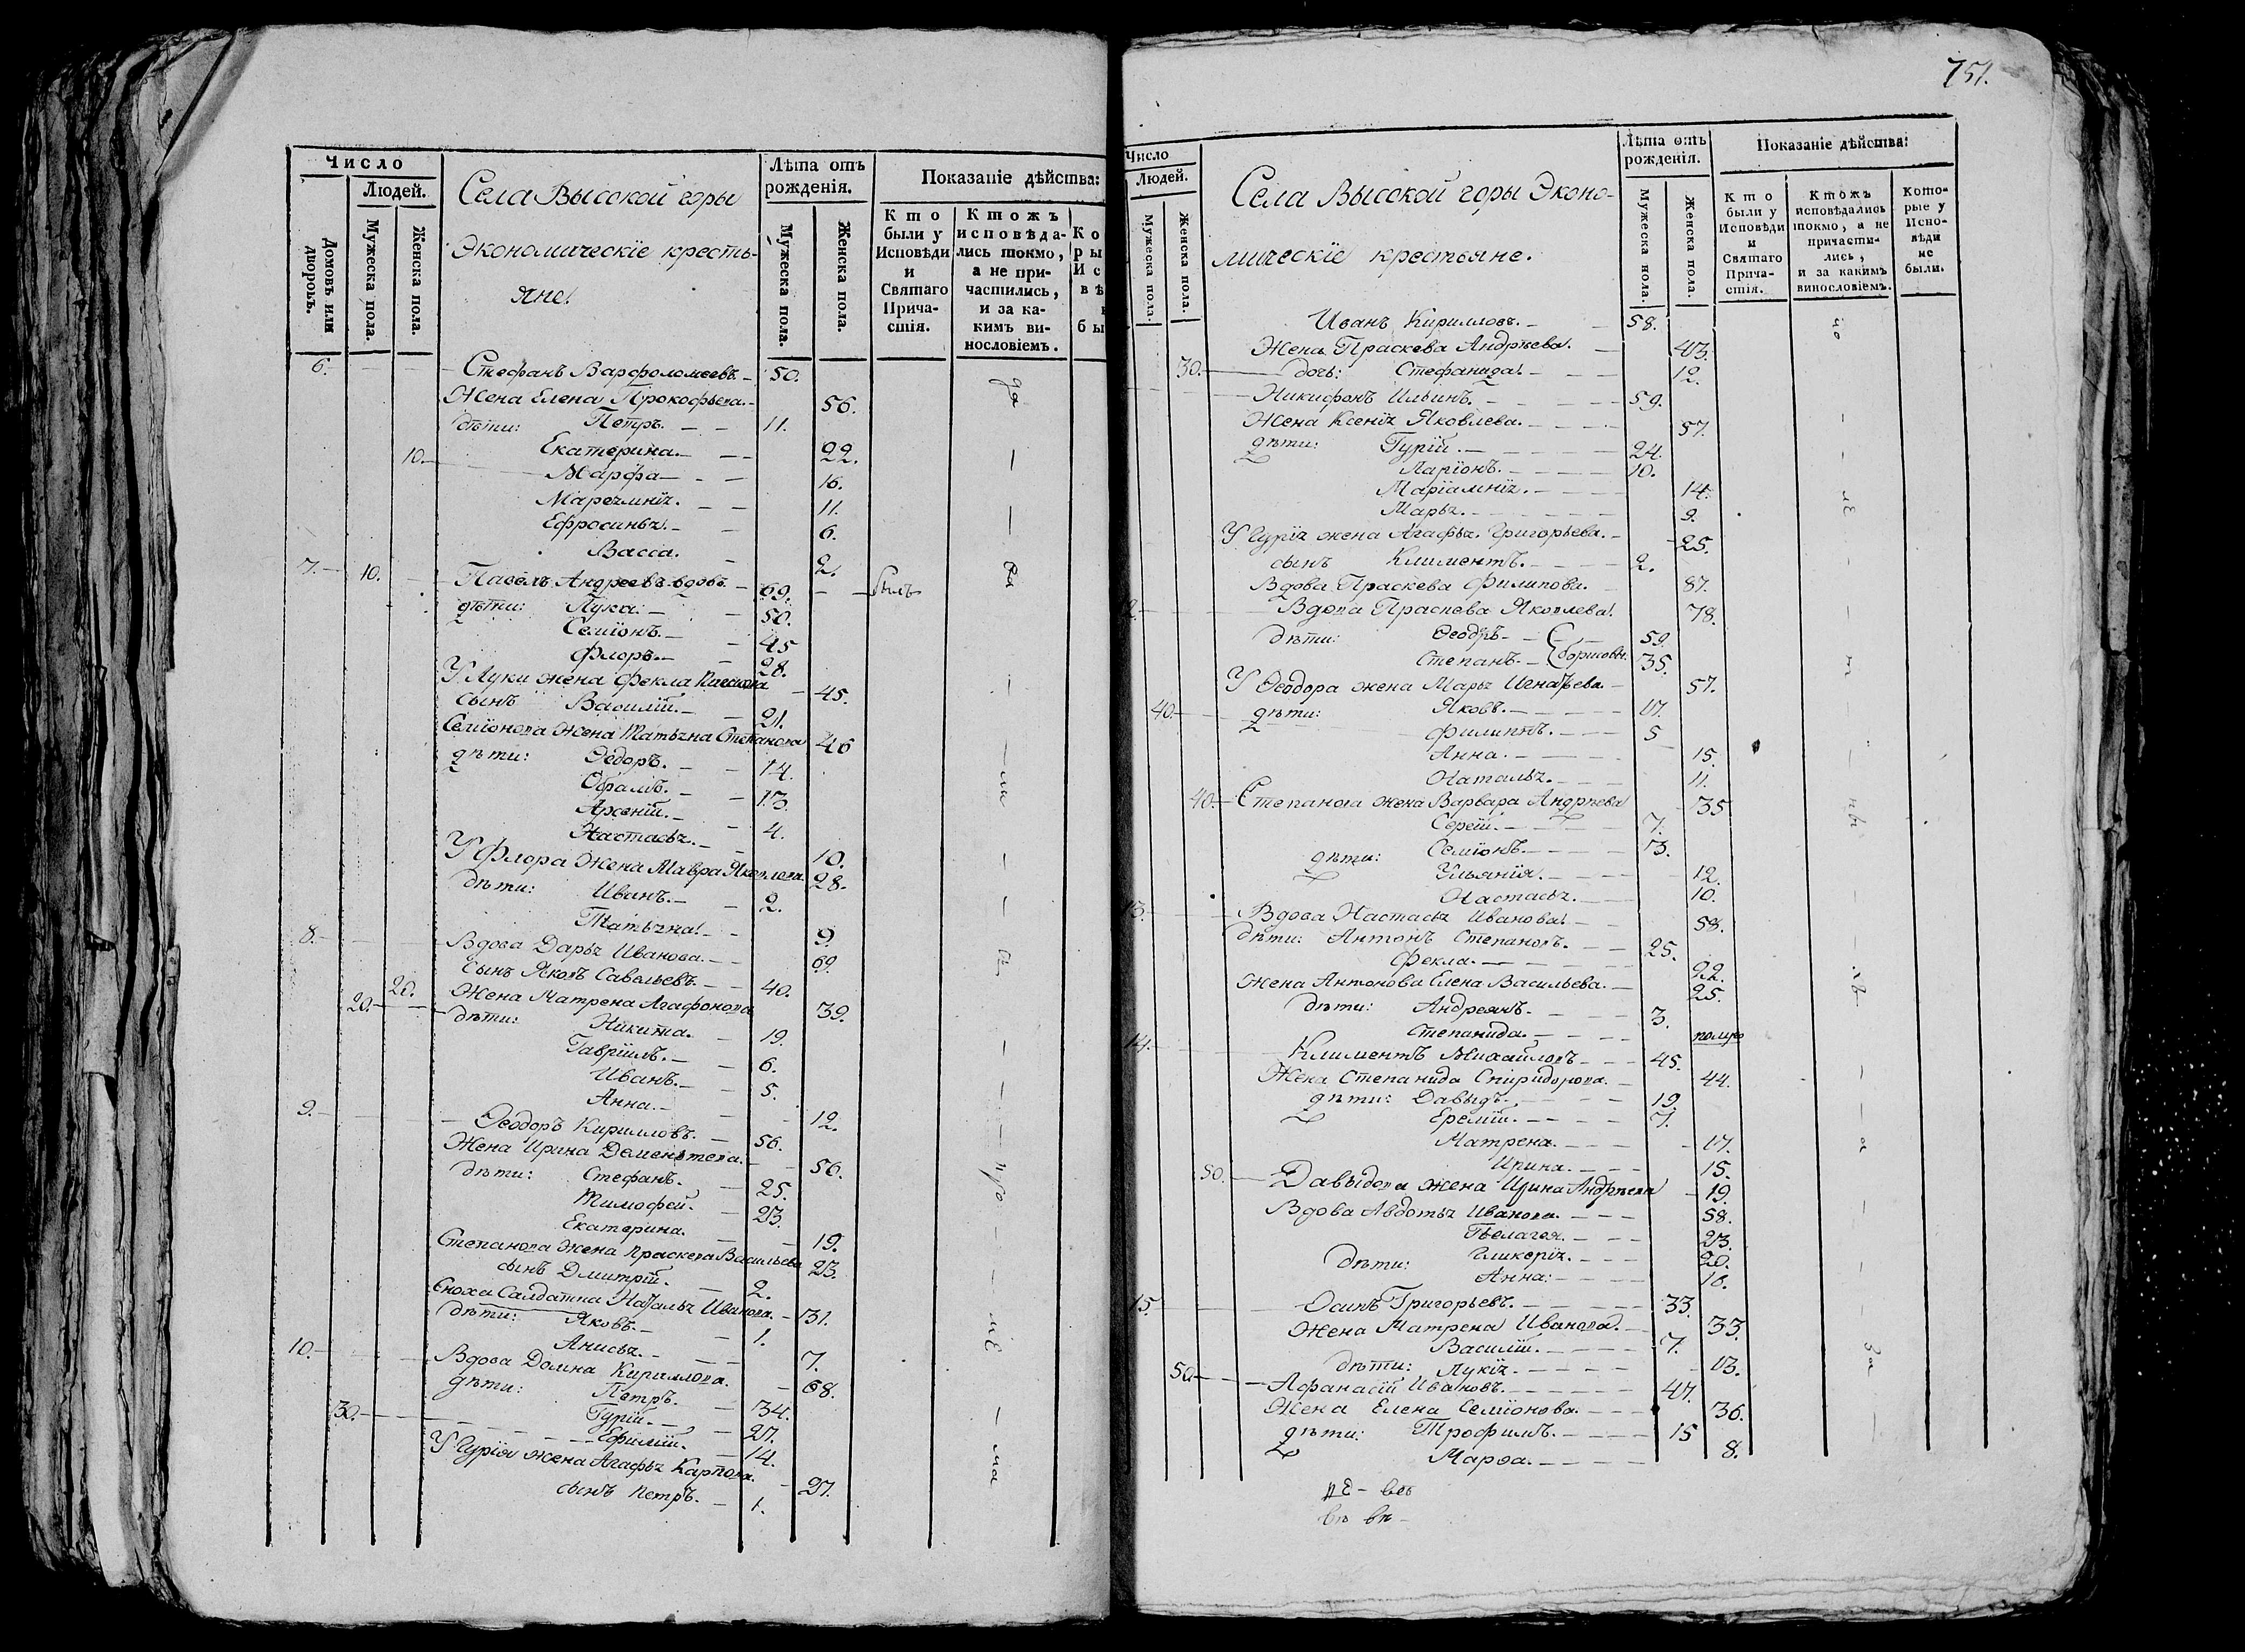 Число
Людей.
Домовъ или дворовъ.
Мужеска пола.
Женска пола.
Села Высокой горы
Экономическіе кресть-
яне.
Лѣта отъ рожденія.
Мужеска пола.
Женска пола.
Показаніе дѣйства:
Кто были у Исповѣди и Святаго Прича-стія.
Ктожъ исповѣда-лись токмо, а не при-частились, и за ка-кимъ ви-нословіемъ.
6. Стефанъ Варфоломеевъ. 50.
Жена Елена Прокофьева. 56.
дѣти: Петръ. 11.
Екатерина. 22.
10. Марфа 16.
11.
Ефросинья. 6.
Васса. 2.
7. 10. Павелъ Андреевъ вдовъ 69. былъ
дѣти: Лука. 50.
Семіонъ. 45
Флоръ. 28.
У Луки жена Фекла 45.
сынъ Василій. 21.
Семіонова жена Татьяна Степанова 46
дѣти: Ѳедоръ. 14.
13.
Арсеній. 4.
Настасья. 10.
У Флора жена Мавра Яковлева 28.
дѣти: Иванъ. 2.
Татьяна. 9.
8. Вдова Дарья Иванова. 69.
сынъ Яковъ Савельевъ. 40.
20. Жена Матрена Агафонова 39.
20. дѣти: Никита. 19.
Гавріилъ. 6.
Иванъ. 5.
Анна. 12.
9. Ѳеодоръ Кирилловъ. 56.
Жена Ирина 56.
дѣти: Стефанъ. 25.
Тимофей. 23.
Екатерина. 19.
Степанова жена Праскева Васильева 23.
сынъ Дмитрій. 2.
Сноха Салдатка Наталья Иванова. 31.
дѣти: Яковъ. 1.
Анисья. 7.
10. Вдова Домна Кириллова. 68.
дѣти: Петръ. 34.
30. Гурій. 27.
Ефимій. 14.
У Гурія жена Агафья Карпова. 27.
сынъ Петръ. 1.
751.
Число
Людей.
Мужеска пола.
Женска пола.
Села Высокой горы Эконо-
мическіе крестьяне.
Лѣта отъ рожденія.
Мужеска пола.
Женска пола.
Показаніе дѣйства:
Кто были у Исповѣди и Святаго Прича-стія.
Ктожъ исповѣдались токмо, а не причасти-лись, и за какимъ винословіемъ.
Кото-рые у Испо-вѣди не были.
Иванъ Кирилловъ. 58.
Жена Праскева Андрѣева. 43.
30. дочь: Стефанида. 12.
Никифонъ Ильинъ. 59.
Жена Ксенія Яковлева. 57.
дѣти: Гурій. 24.
Ларіонъ. 10.
Маріамнія. 14.
Марья. 9.
У Гурія жена Агафья Григорьева. 25.
сынъ Климентъ. 2.
Вдова Праскева Филипова. 87.
Вдова Праскева Яковлева. 78.
дѣти: Ѳеодръ 59.
Степанъ. Борисовы. 35.
У Ѳеодора жена Марья Игнатьева. 57.
40. дѣти: Яковъ. 17.
Филиппъ. 5
Анна. 15.
Наталья. 11.
40. Степанова жена Варвара Андрѣева 35
Сергій. 7.
дѣти: Семіонъ. 3.
Ульянія. 12.
Настасья. 10.
13. Вдова Настасья Иванова. 58.
дѣти: Антонъ Степановъ. 25.
Фекла. 22.
Жена Антонова Елена Васильева. 25.
дѣти: Андреянъ. 3.
Степанида.
14. Климентъ Михайловъ 45.
Жена Степанида Спиридонова. 44.
дѣти: Давыдъ. 19
Еремій. 7.
Матрена. 17.
Ирина. 15.
50. Давыдова жена Ирина Андрѣева 19.
Вдова Авдотья Иванова. 58.
Пелагея. 23.
дѣти: Гликерія. 20.
Анна. 16.
15. Осипъ Григорьевъ. 33.
Жена Матрена Иванова. 33.
Василій. 7.
дѣти: Лукія. 13.
50. Афанасій Ивановъ. 47.
Жена Елена Семіонова. 36.
дѣти: Трофимъ. 15
Марѳа. 8.